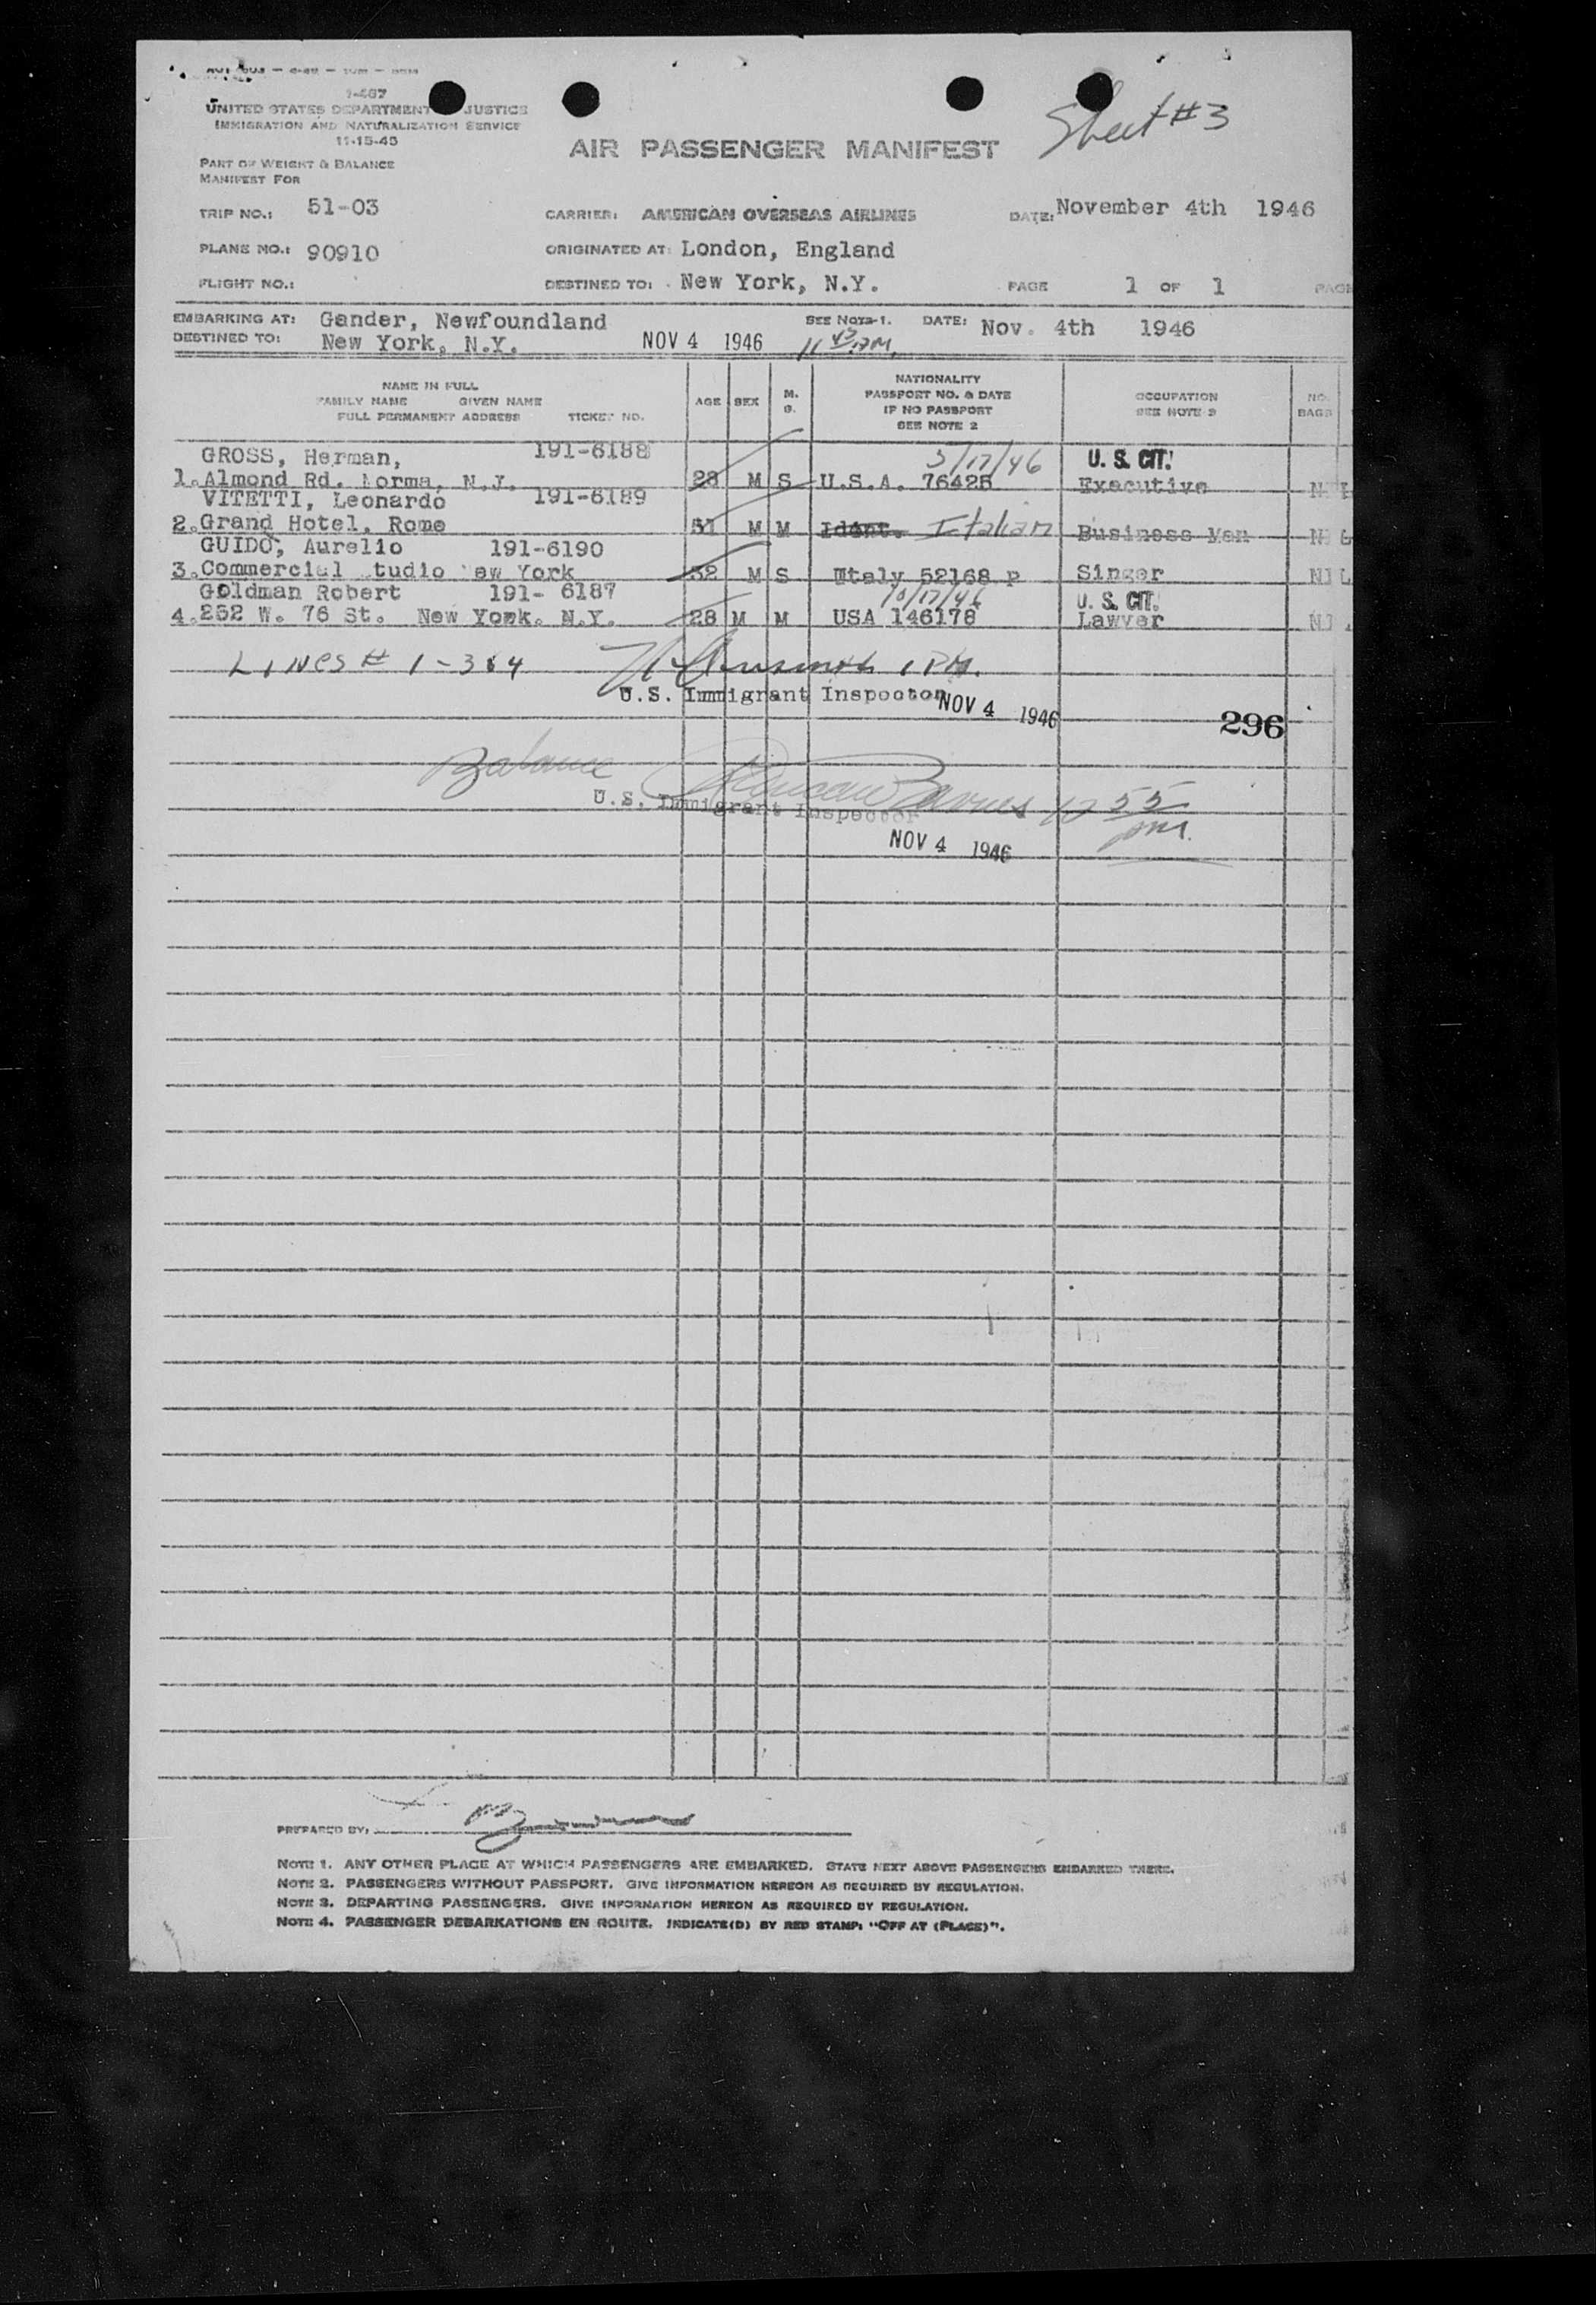 1-467
UNITED STATES DEPARTMENT JUSTICE
IMMIGRATION AND NATURALIZATION SERVICE
11-15-45
Sheet #3
AIR PASSENGER MANIFEST
PART OF WEIGHT & BALANCE
MANIFEST FOR
TRIP NO.: 51-03 CARRIER: AMERICAN OVERSEAS AIRLINES DATE: November 4th 1946
PLANE NO.: 90910 ORIGINATED AT: London, England
FLIGHT NO.: DESTINED TO: New York, N.Y. PAGE 1 OF 1
EMBARKING AT: Gander, Newfoundland SEE NOTE 1. DATE: Nov. 4th 1946
DESTINED TO: New York, N.Y. NOV 4 1946 11 45 AM.
NAME IN FULL
FAMILY NAME GIVEN NAME
FULL PERMANENT ADDRESS TICKET NO. AGE SEX M. S. NATIONALITY PASSPORT NO. & DATE IF NO PASSPORT SEE NOTE 2 OCCUPATION SEE NOTE 3 NO. BAGS
GROSS, Herman, 191-6188 5/17/46 U.S. CIT.
1. Almond Rd. Norma, N.J. 28 M S U.S.A. 76425 Executive
VITETTI, Leonardo 191-6189
2. Grand Hotel, Rome 51 M M Ident. Italian Business Man
GUIDO, Aurelio 191-6190
3. Commercial tudio ew York 32 M S Italy 52168 p Singer
Goldman Robert 191- 6187 10/17/46 U.S. CIT.
4. 252 W. 76 St. New York. N.Y. 28 M M USA 146178 Lawyer
LINES # 1-3&4 1 PM.
U.S. Immigrant Inspector NOV 4 1946
296
Balance Barnes 12 55 pm.
U.S. Immigrant Inspector
NOV 4 1946
PREPARED BY:
NOTE 1. ANY OTHER PLACE AT WHICH PASSENGERS ARE EMBARKED. STATE NEXT ABOVE PASSENGERS EMBARKED THERE.
NOTE 2. PASSENGERS WITHOUT PASSPORT. GIVE INFORMATION HEREON AS REQUIRED BY REGULATION.
NOTE 3. DEPARTING PASSENGERS. GIVE INFORMATION HEREON AS REQUIRED BY REGULATION.
NOTE 4. PASSENGER DEBARKATIONS EN ROUTE. INDICATE(D) BY RED STAMP: "OFF AT (PLACE)".